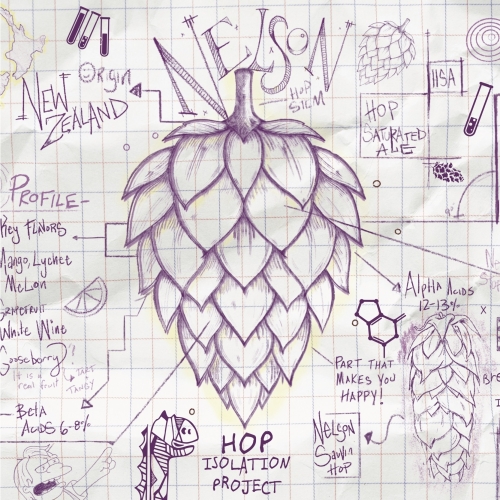 NELSON
Origin
NEW
ZEALAND
HOP
STEM
HSA
HOP
SATURATED
ALE
PROFILE-
Key FLAVORS
Mango, Lychee
MeLon
GRAPEFRUIT
White Wine
Gooseberry?!
It is a
real fruit
TART
TANGY
BeTA
ACIDS 6-8%
ALPHA ACIDS
12-13%
PART THAT
MAKES YOU
HAPPY!
NeLSON
SauVin
HOP
HOP
ISOLATION
PROJECT